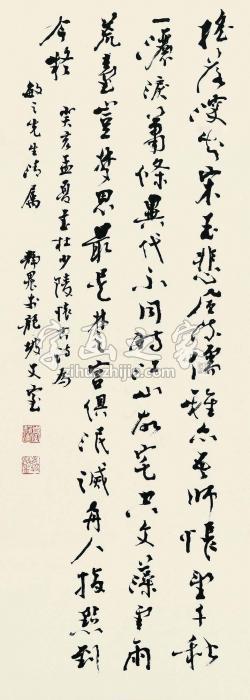 搖落深知宋玉悲風流儒雅亦吾師悵望千秋
一灑淚蕭條異代不同時江山故宅空文藻雲雨
荒臺豈夢思最是楚宮俱泯滅舟人指點到
今疑 癸亥孟夏書杜少陵懷古詩為
敏之先生清屬
靜農於龍坡丈室
字画之家
zihuazhijia.com